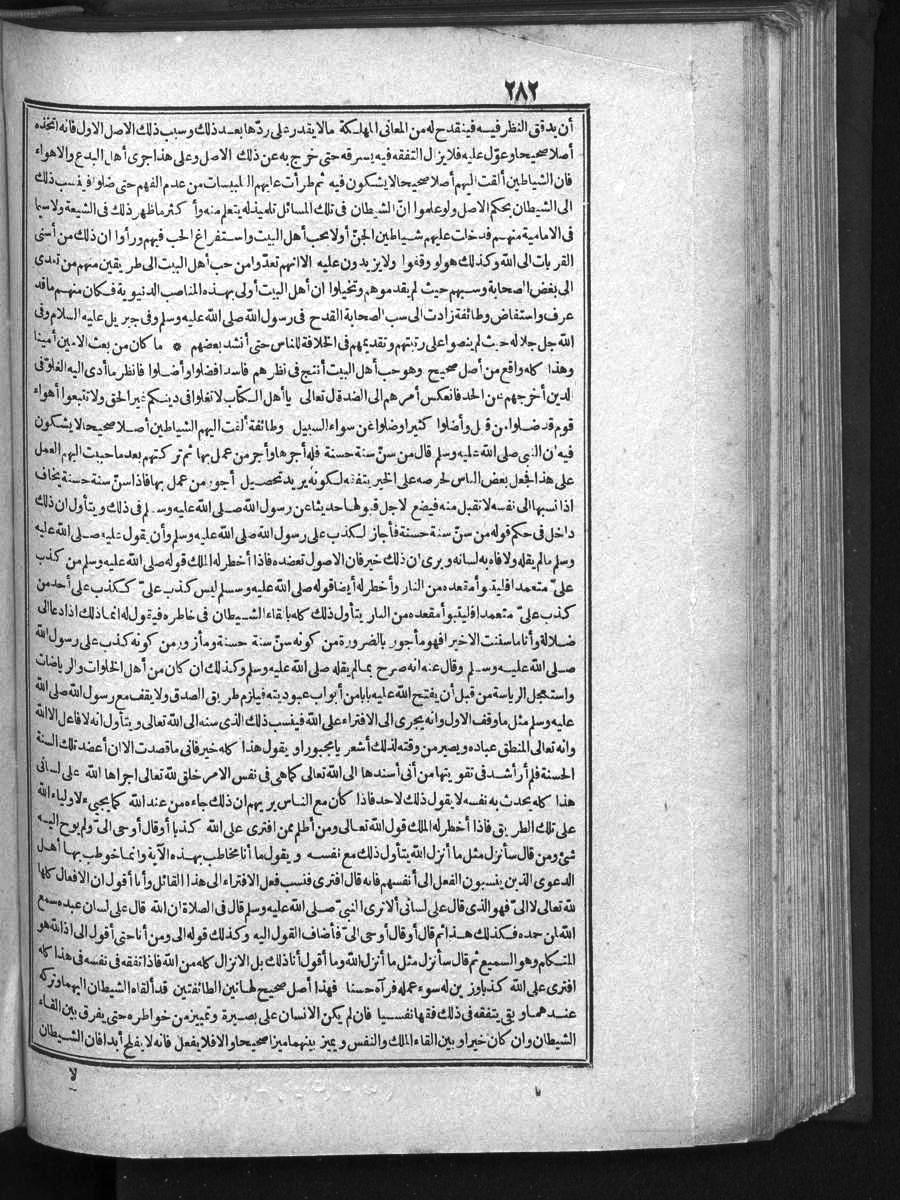 ٢٨٢
أن يدقق النظر فيه فينقدح له من المعانى المهلكة مالا يقدر على ردّها بعد ذلك وسبب ذلك الاصل الاول فانه اتخذه
أصلا صحيحا وعوّل عليه فلا يزال التفقه فيه يسرقه حتى خرج به عن ذلك الاصل وعلى هذا جرى أهل البدع والاهواء
فان الشياطين ألقت اليهم أصلا صحيحا لا يشكون فيه ثم طرأت عليهم التلبيسات من عدم الفهم حتى ضلوا فينسب ذلك
الى الشيطان بحكم الاصل ولو علموا انّ الشيطان فى تلك المسائل تلميذ له يتعلم منه وأكثر ما ظهر ذلك فى الشيعة ولاسيما
فى الامامية منهم فدخلت عليهم شياطين الجنّ أولا بحب أهل البيت واستفراغ الحب فيهم ورأوا ان ذلك من أسنى
القربات الى الله وكذلك هو لو وقفوا ولا يزيدون عليه الا انهم تعدّوا من حب أهل البيت الى طريقين منهم من تعدى
الى بغض الصحابة وسبهم حيث لم يقدموهم وتخيلوا ان أهل البيت أولى بهذه المناصب الدنيوية فكان منهم ما قد
عرف واستفاض وطائفة زادت الى سب الصحابة القدح فى رسول الله صلى الله عليه وسلم وفى جبريل عليه السلام وفى
الله جل جلاله حيث لم ينصوا على رتبتهم وتقديمهم فى الخلافة للناس حتى أنشد بعضهم * ما كان من بعث الامين أمينا
وهذا كله واقع من أصل صحيح وهو حب أهل البيت أنتج فى نظرهم فاسدا فضلوا وأضلوا فانظر ما أدى اليه الغلوّ فى
الدين أخرجهم عن الحد فانعكس أمرهم الى الضد قال تعالى يا أهل الكتاب لا تغلوا فى دينكم غير الحق ولا تتبعوا أهواء
قوم قد ضلوا من قبل وأضلوا كثيرا وضلوا عن سواء السبيل وطائفة ألقت اليهم الشياطين أصلا صحيحا لا يشكون
فيه ان النبى صلى الله عليه وسلم قال من سنّ سنة حسنة فله أجرها وأجر من عمل بها ثم تركتهم بعد ما حببت اليهم العمل
على هذا فجعل بعض الناس لحرصه على الخير يتفقه لكونه يريد تحصيل أجور من عمل بها فاذا سنّ سنة حسنة يخاف
اذا نسبها الى نفسه لا تقبل منه فيضع لاجل قبولها حديثا عن رسول الله صلى الله عليه وسلم فى ذلك ويتأول ان ذلك
داخل فى حكم قوله من سنّ سنة حسنة فأجاز الكذب على رسول الله صلى الله عليه وسلم وأن يقول عليه صلى الله عليه
وسلم ما لم يقله ولا فاه به لسانه ويرى ان ذلك خير فان الاصول تعضده فاذا أخطر له الملك قوله صلى الله عليه وسلم من كذب
علىّ متعمدا فليتبوأ مقعده من النار وأخطر له أيضا قوله صلى الله عليه وسلم ليس كذب علىّ ككذب على أحد من
كذب علىّ متعمدا فليتبوأ مقعده من النار يتأول ذلك كله بالقاء الشيطان فى خاطره فيقول له انما ذلك اذا دعا الى
ضلالة وأنا ما سننت الا خيرا فهو مأجور بالضرورة من كونه سنّ سنة حسنة ومأزور من كونه كذب على رسول الله
صلى الله عليه وسلم وقال عنه انه صرح بما لم يقله صلى الله عليه وسلم وكذلك ان كان من أهل الخلوات والرياضات
واستعجل الرياسة من قبل أن يفتح الله عليه بابا من أبواب عبوديته فيلزم طريق الصدق ولا يقف مع رسول الله صلى الله
عليه وسلم مثل ما وقف الاول وانه يجرى الى الافتراء على الله فينسب ذلك الذى سنه الى الله تعالى ويتأول انه لا فاعل الا الله
وانه تعالى المنطق عباده ويصير من وقته لذلك أشعريا مجبورا ويقول هذا كله خير فانى ما قصدت الا ان أعضد تلك السنة
الحسنة فلم أر أشد فى تقويتها من أنى أسندها الى الله تعالى كما هى فى نفس الامر خلق لله تعالى اجراها الله على لسانى
هذا كله يحدث به نفسه لا يقول ذلك لاحد فاذا كان مع الناس يريهم ان ذلك جاءه من عند الله كما يجىء لاولياء الله
على تلك الطريق فاذا أخطر له الملك قول الله تعالى ومن أظلم ممن افترى على الله كذبا أو قال أوحى الىّ ولم يوح اليه
شئ ومن قال سأنزل مثل ما أنزل الله يتأول ذلك مع نفسه ويقول ما أنا مخاطب بهذه الآية وانما خوطب بها أهل
الدعوى الذين ينسبون الفعل الى أنفسهم فانه قال افترى فنسب فعل الافتراء الى هذا القائل وأنا أقول ان الافعال كلها
لله تعالى لا الىّ فهو الذى قال على لسانى ألا ترى النبىّ صلى الله عليه وسلم قال فى الصلاة ان الله قال على لسان عبده سمع
الله لمن حمده فكذلك هذا ثم قال أو قال أوحى الىّ فأضاف القول اليه وكذلك قوله الى ومن أنا حتى أقول الى اذ الله هو
المتكلم وهو السميع ثم قال سأنزل مثل ما أنزل الله وما أقول أنا ذلك بل الانزال كله من الله فاذا تفقه فى نفسه فى هذا كله
افترى على الله كذبا وزين له سوء عمله فرآه حسنا فهذا أصل صحيح لهاتين الطائفتين قد ألقاه الشيطان اليهما وتركه
عندهما وبقى يتفقه فى ذلك فقها نفسيا فان لم يكن الانسان على بصيرة وتمييز من خواطره حتى يفرق بين القاء
الشيطان وان كان خيرا وبين القاء الملك والنفس ويميز بينهما ميزا صحيحا والا فلا يفعل فانه لا يفلح أبدا فان الشيطان
لا